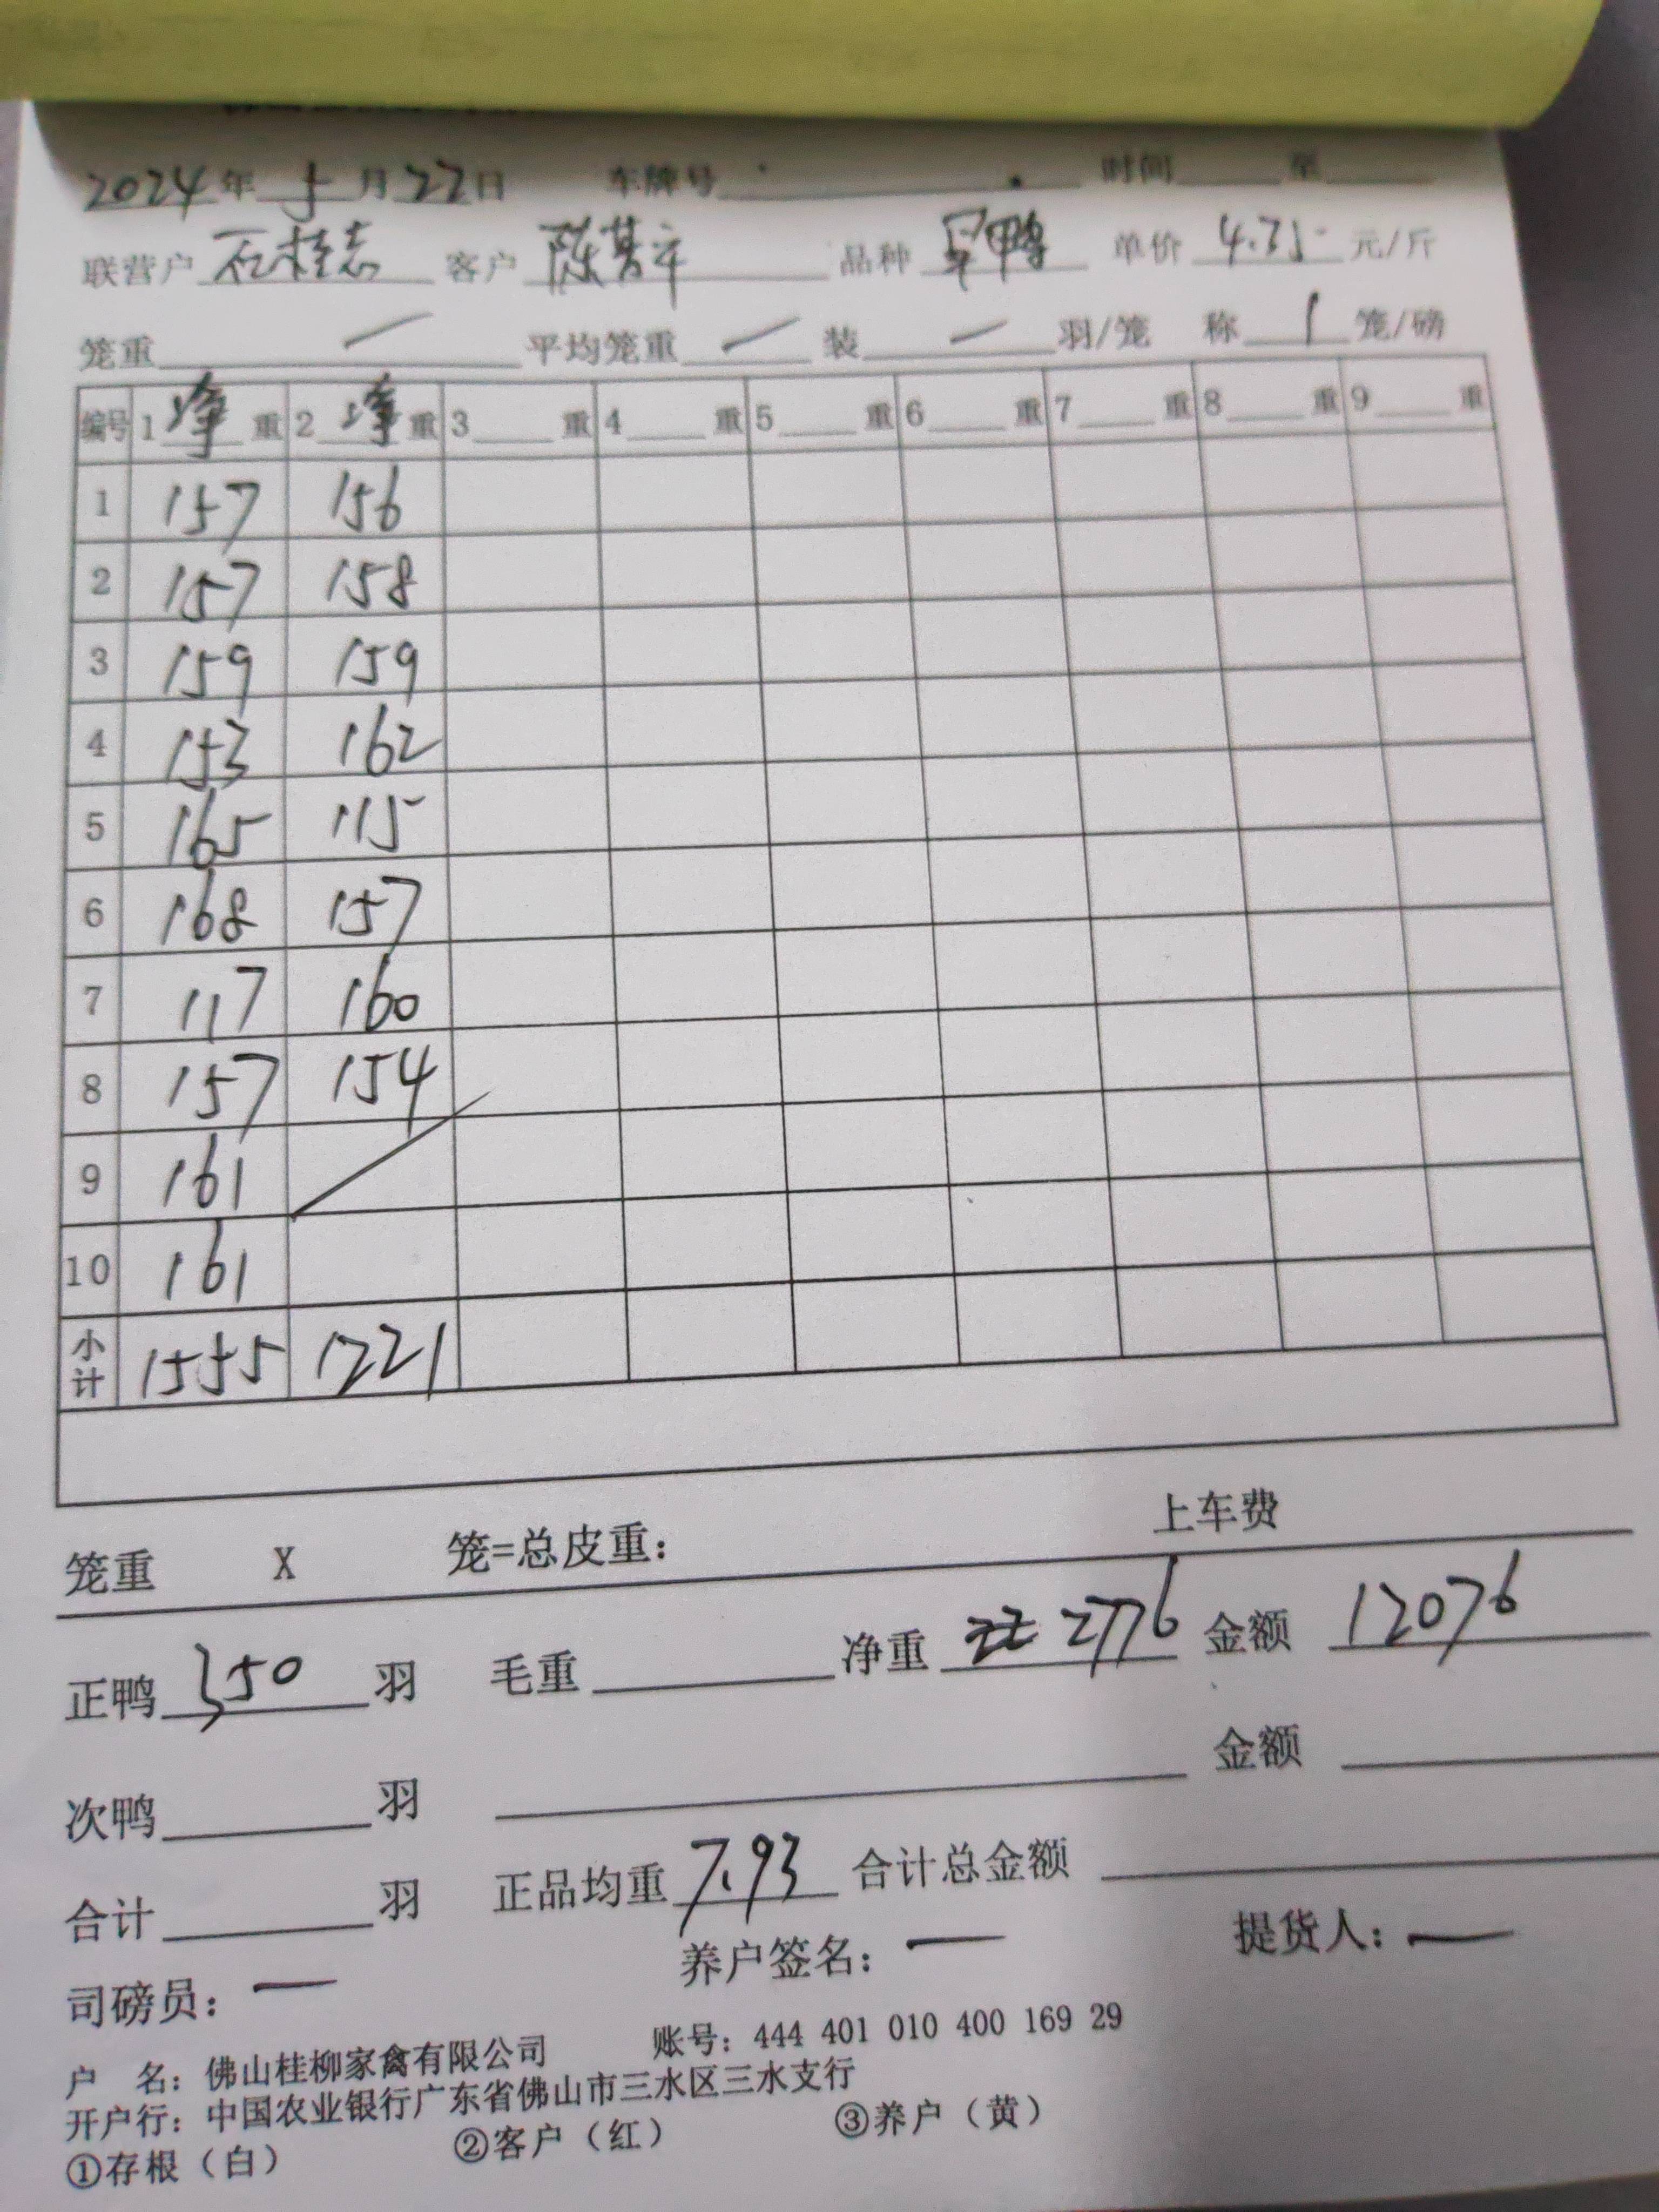 2024年 5 月 22 日 车牌号 时间 至
联营户 石桂志 客户 陈 品种 鸭 单价 4.35 元/斤
笼重 — 平均笼重 — 装 — 羽/笼 称 1 笼/磅
编号 1 净 重 2 净 重 3 重 4 重 5 重 6 重 7 重 8 重 9 重
1 157 156
2 157 158
3 159 159
4 153 162
5 165 115
6 168 157
7 117 160
8 157 154
9 161
10 161
小计 1555 1221
上车费
笼重 X 笼=总皮重:
正鸭 350 羽 毛重 净重 2776 金额 12076
次鸭 羽 金额
合计 羽 正品均重 7.93 合计总金额
司磅员: — 养户签名: — 提货人: —
户 名: 佛山桂柳家禽有限公司 账号: 444 401 010 400 169 29
开户行: 中国农业银行广东省佛山市三水区三水支行
①存根（白） ②客户（红） ③养户（黄）